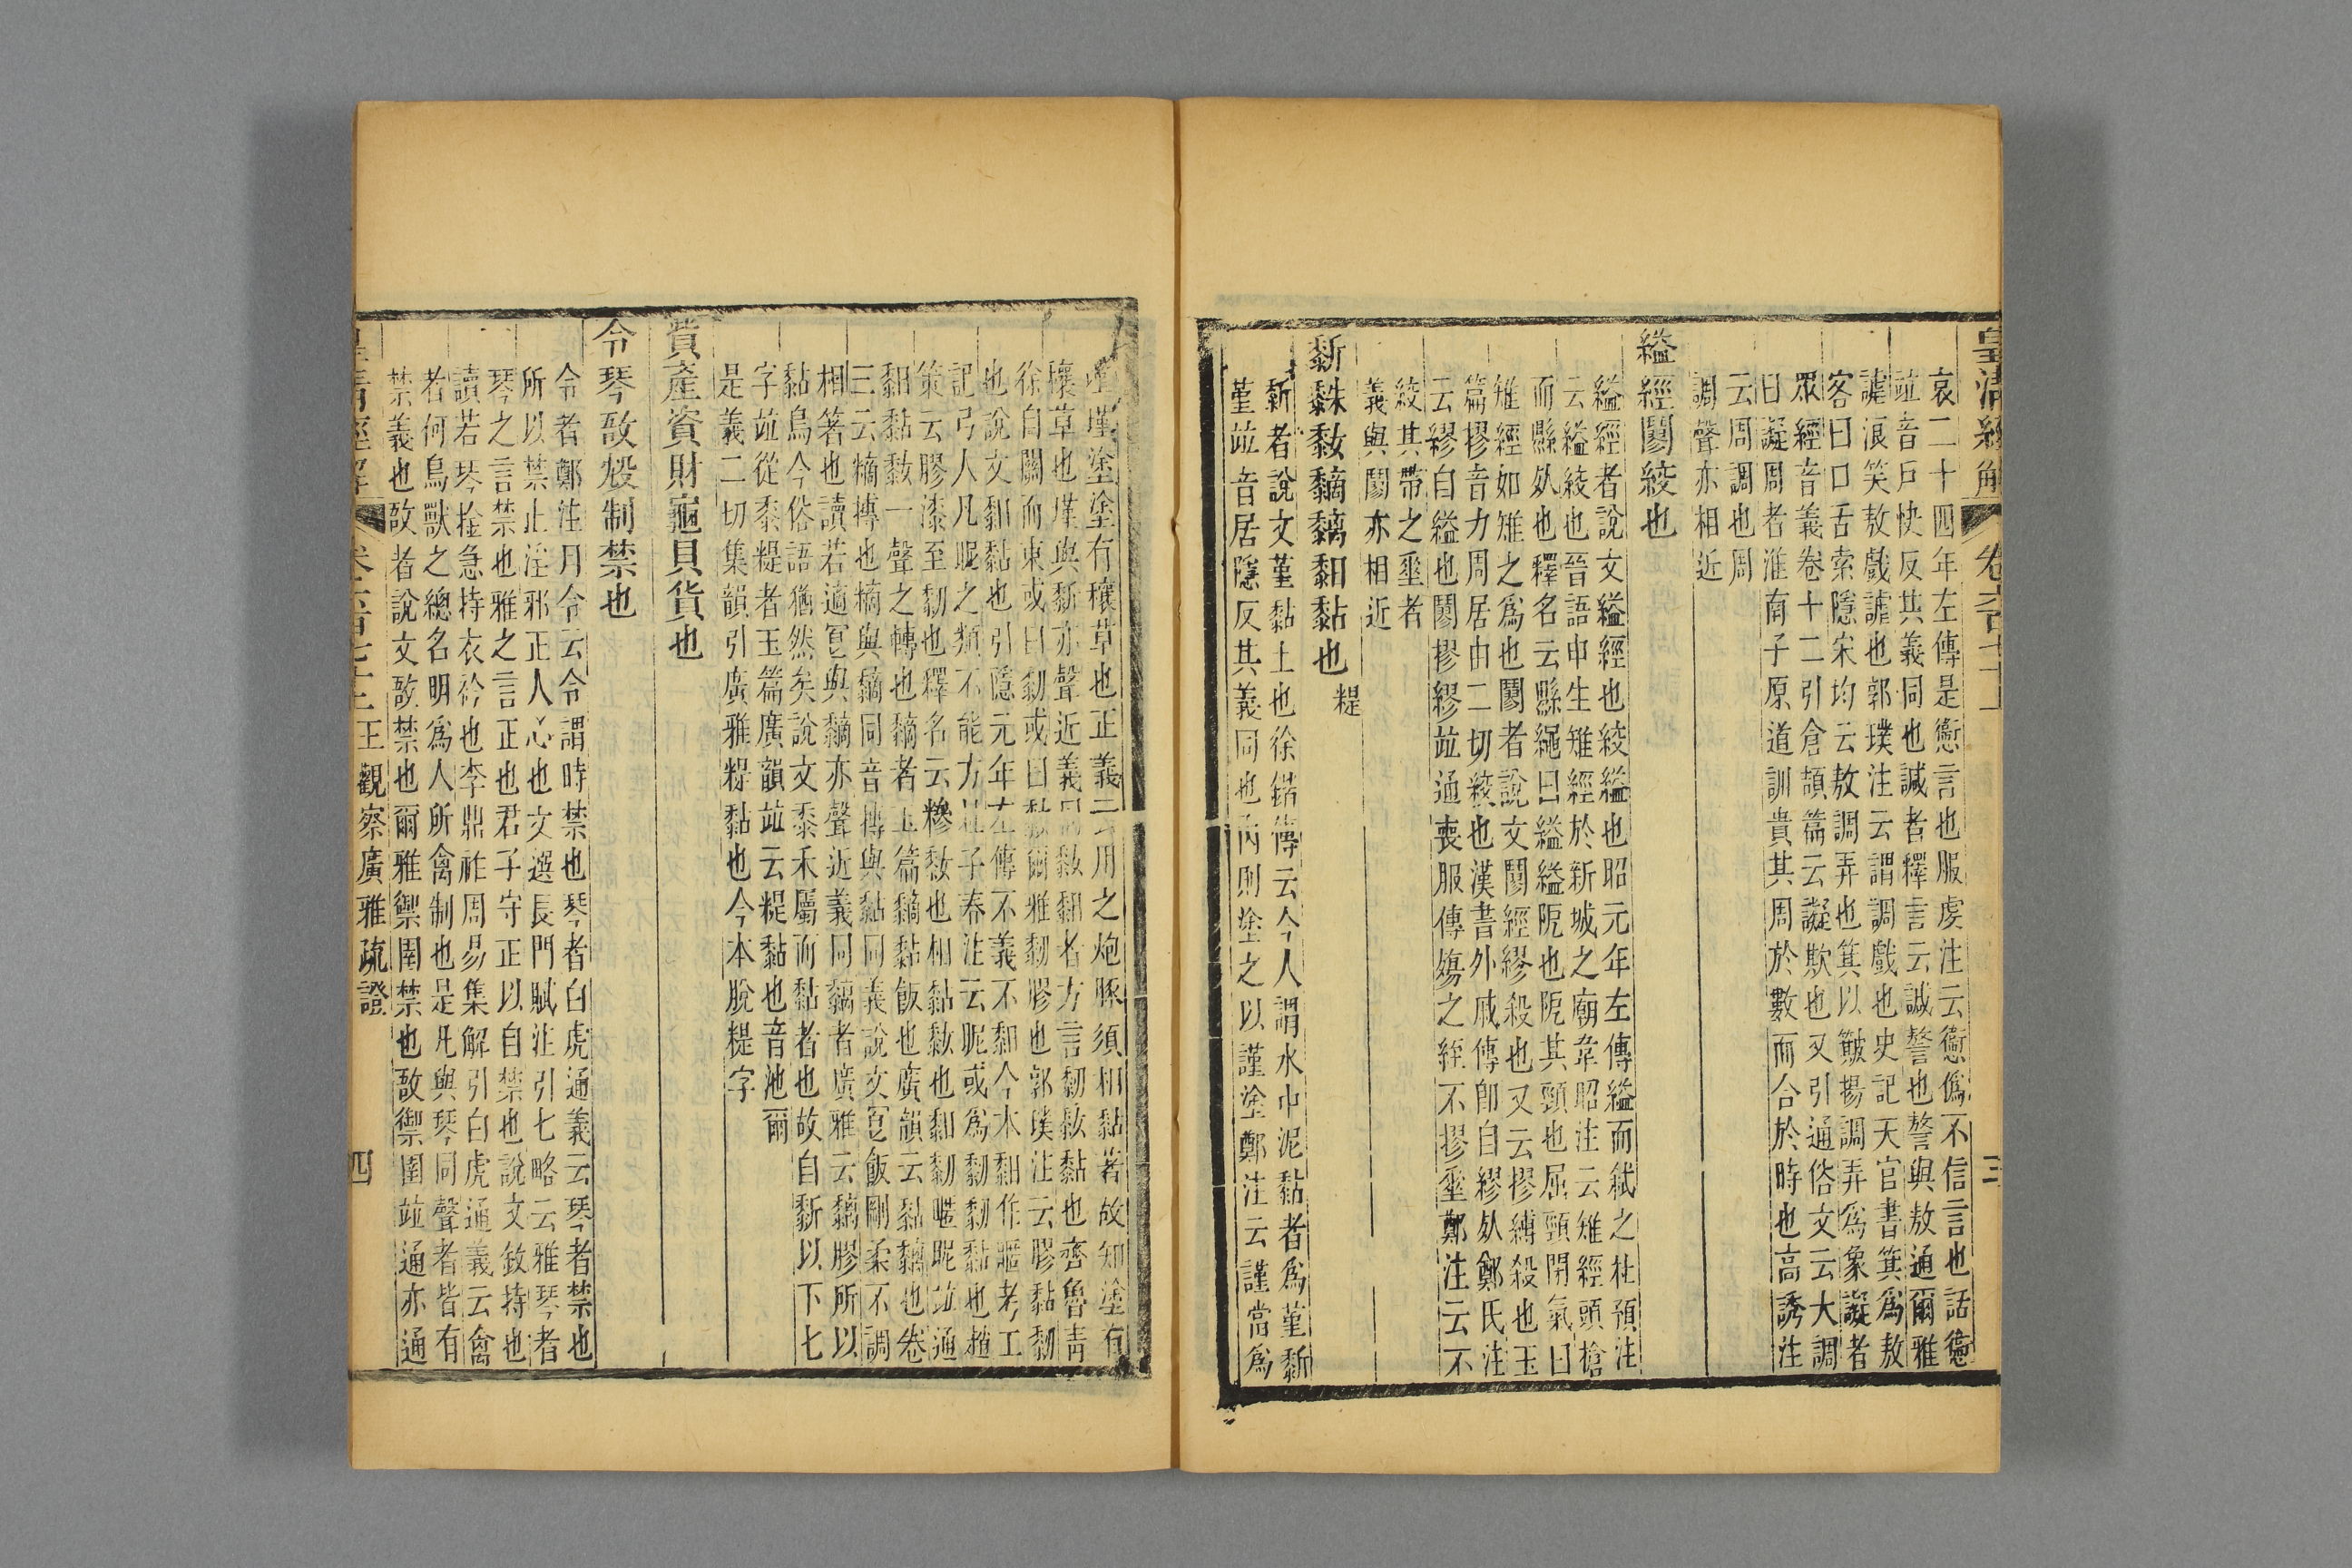 皇清經解
三
哀二十四年左傳是躗言也服虔注云躗僞不信言也話躗
竝音戶快反其義同也諴者釋言云諴警也警與敖通爾雅
謔浪笑敖戲謔也郭璞注云謂調戲也史記天官書箕爲敖
客曰口舌索隱宋均云敖調弄也箕以簸揚調弄爲象譺者
眾經音義卷十二引倉頡篇云譺欺也又引通俗文云大調
曰譺周者淮南子原道訓貴其周於數而合於時也高誘注
云周調也周
調聲亦相近
縊經闅絞也
縊經者說文縊經也絞縊也昭元年左傳縊而弒之杜預注
云縊絞也晉語申生雉經於新城之廟韋昭注云雉經頭槍
而縣㱙也釋名云縣繩曰縊縊阨也阨其頸也屈頸閉氣曰
雉經如雉之爲也闅者說文闅經繆殺也又云摎縛殺也玉
篇摎音力周居由二切絞也漢書外戚傳卽自繆㱙鄭氏注
云繆自縊也闅摎繆竝通喪服傳殤之絰不摎垂鄭注云不
絞其帶之垂者
義與闅亦相近
黏也 䊓
者說文堇黏土也徐鍇傳云今人謂水中泥黏者爲堇
堇竝音居隱反其義同也內則塗之以謹塗鄭注云謹當爲
墐墐塗塗有穰草也正義云用之炮豚須相黏著故知塗有
穰草也
徐自關而東或曰䵒或曰䵑爾雅䵒膠也郭璞注云膠黏䵒
也說文䵑黏也引隱元年左傳不義不䵑今本䵑作暱考工
記弓人凡昵之類不能方杜子春注云昵或爲䵒䵒黏也
策云膠漆至䵒也釋名云糝䵑也相黏䵑也
三云樀摶也樀與䵘同音摶與黏同義說文
相著也讀若適
黏鳥今俗語猶然矣說文黍禾屬而黏者也故自䵖以下七
字竝從黍䊓者玉篇廣韻竝云䊓黏也音池爾
是義二切集韻引廣雅䊓黏也今本脫䊓字
貲產資財龜貝貨也
令琴敔殺制禁也
令者鄭注月令云令謂時禁也琴者白虎通義云琴者禁也
所以禁止淫邪正人心也文選長門賦注引七略云雅琴者
琴之言禁也雅之言正也君子守正以自禁也說文敜持也
讀若琴捦急持衣衿也李鼎祚周易集解引白虎通義云禽
者何鳥獸之總名明爲人所禽制也是凡與琴同聲者皆有
禁義也敔者說文敔禁也爾雅禦圉禁也敔禦圉竝通亦通
王觀察廣雅疏證
四